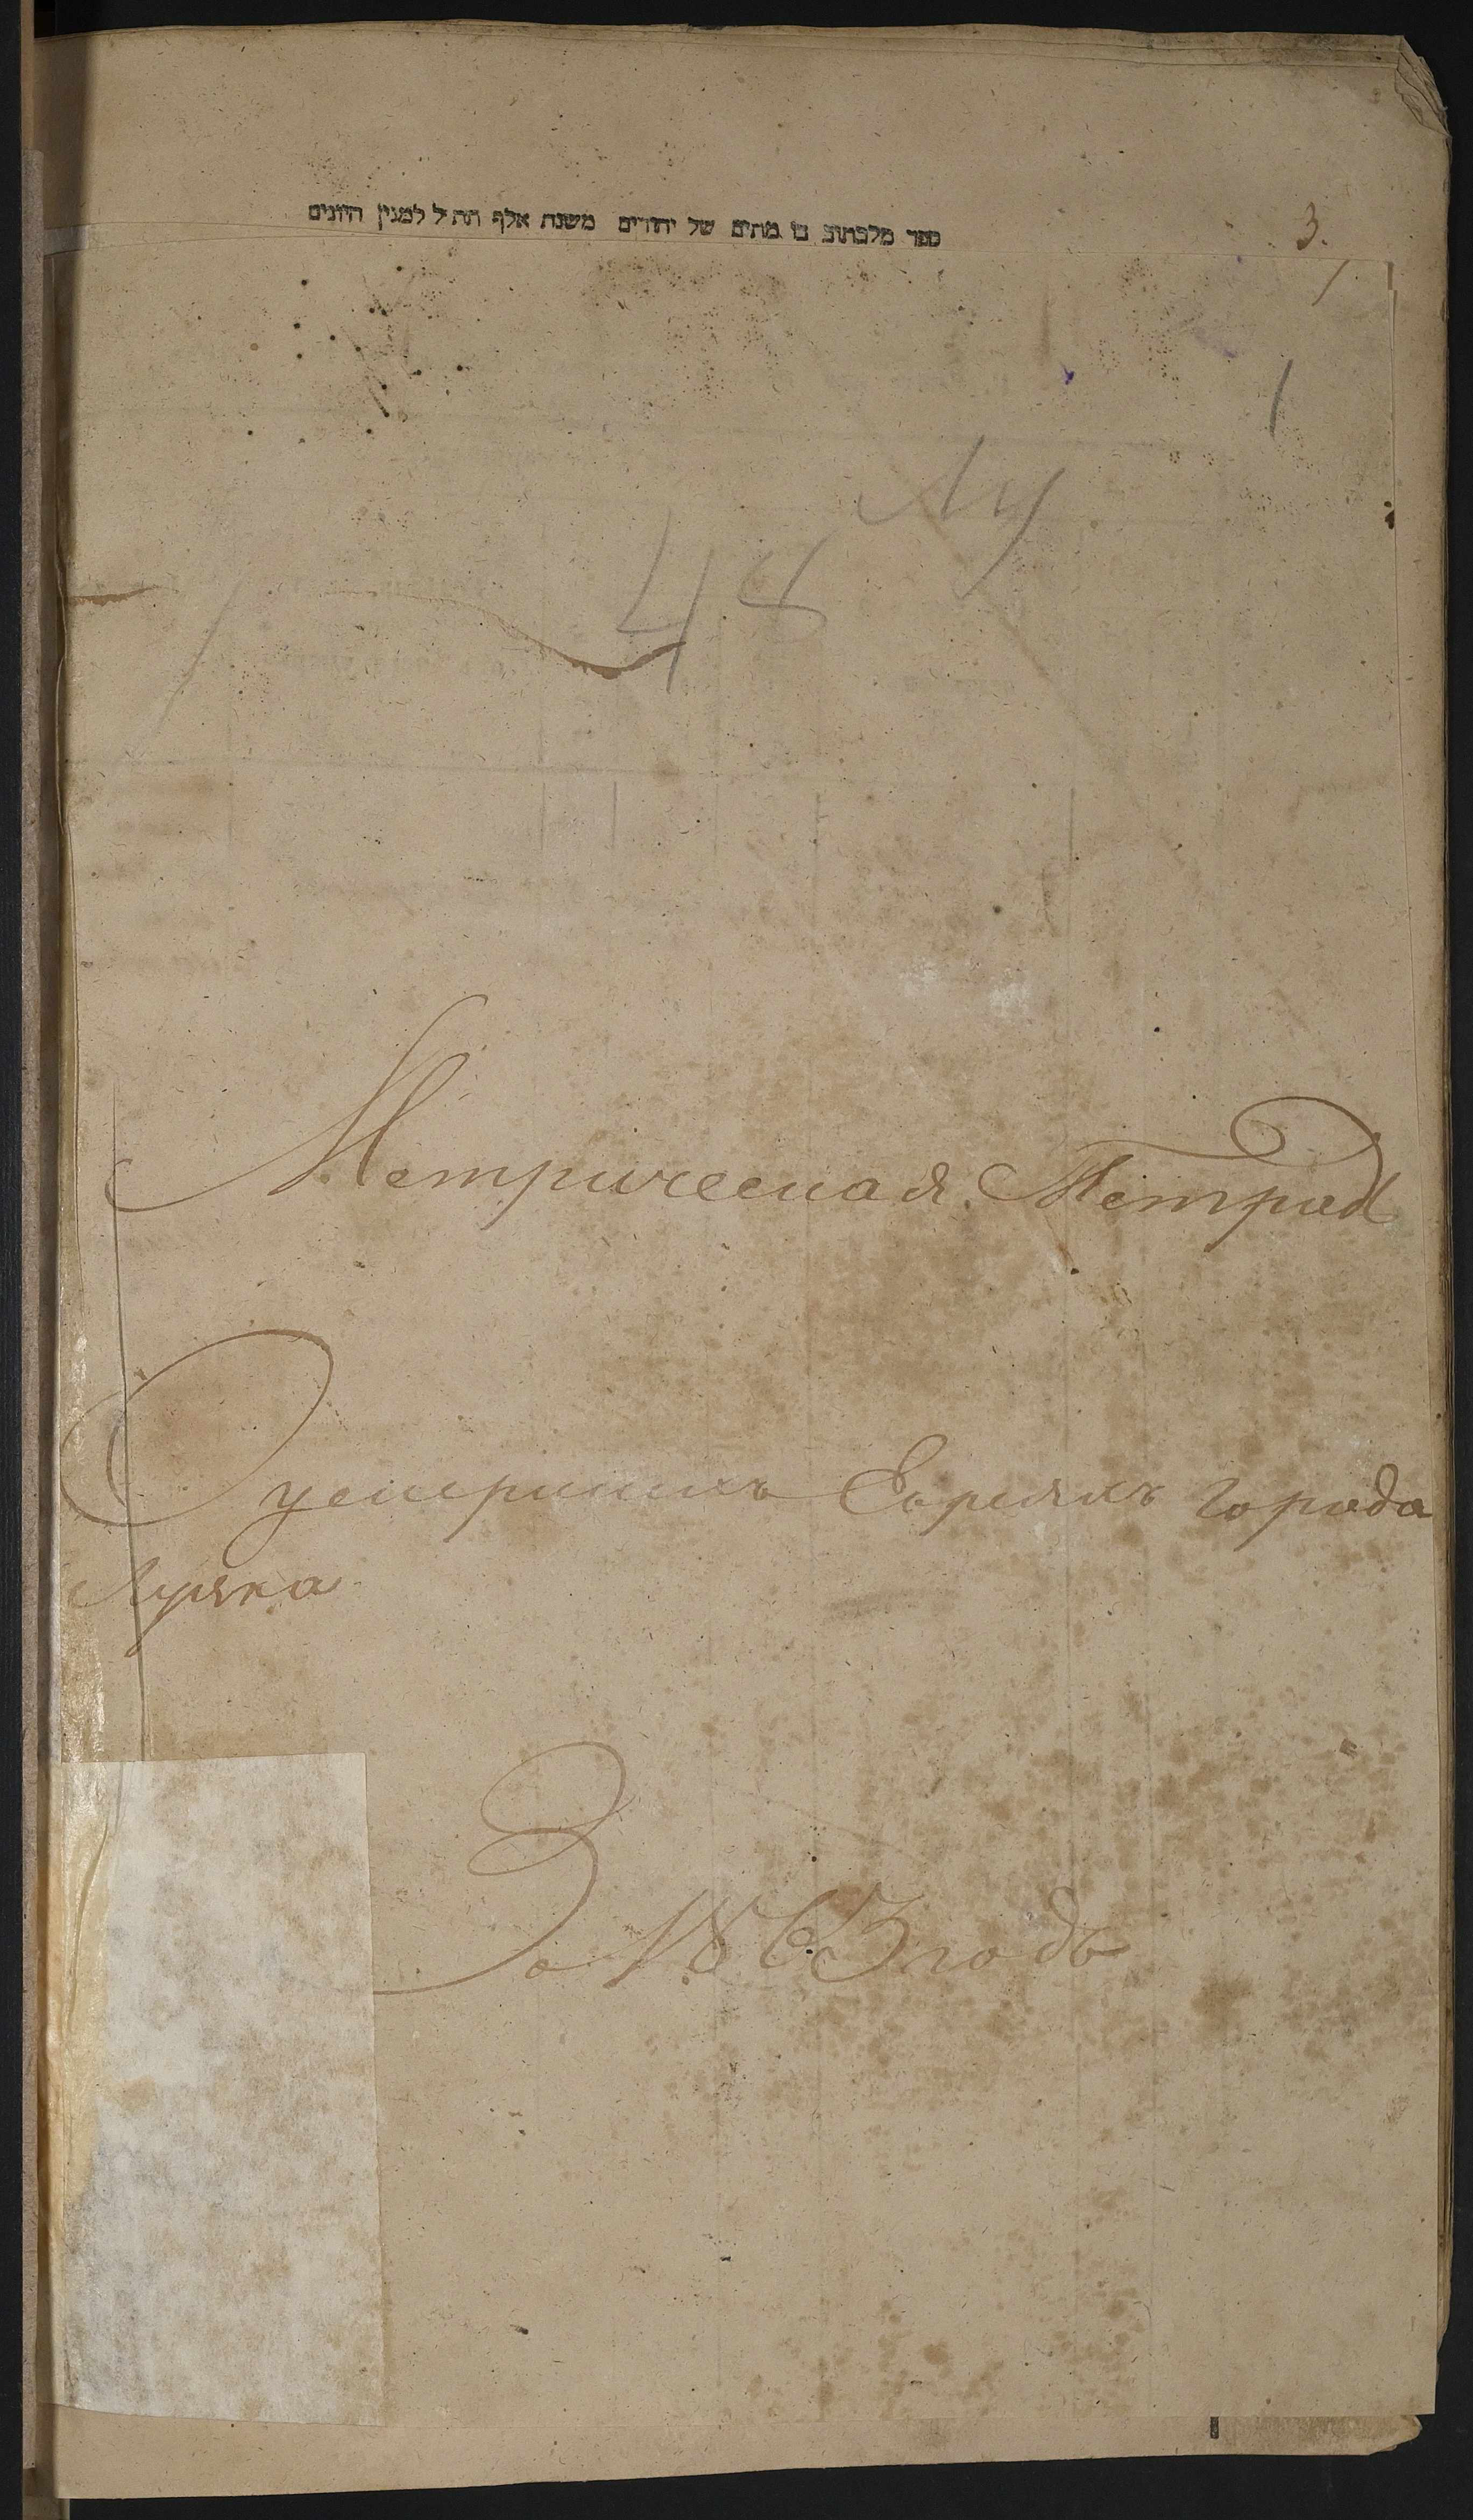 ספר מלכתוב בו מתים של יהודים משנת אלף תת״ל למנין היונים
3.
1
Лу
48
Метрическая Тетрад
О умершихъ Евреяхъ города
Луцка
За 1863 годъ